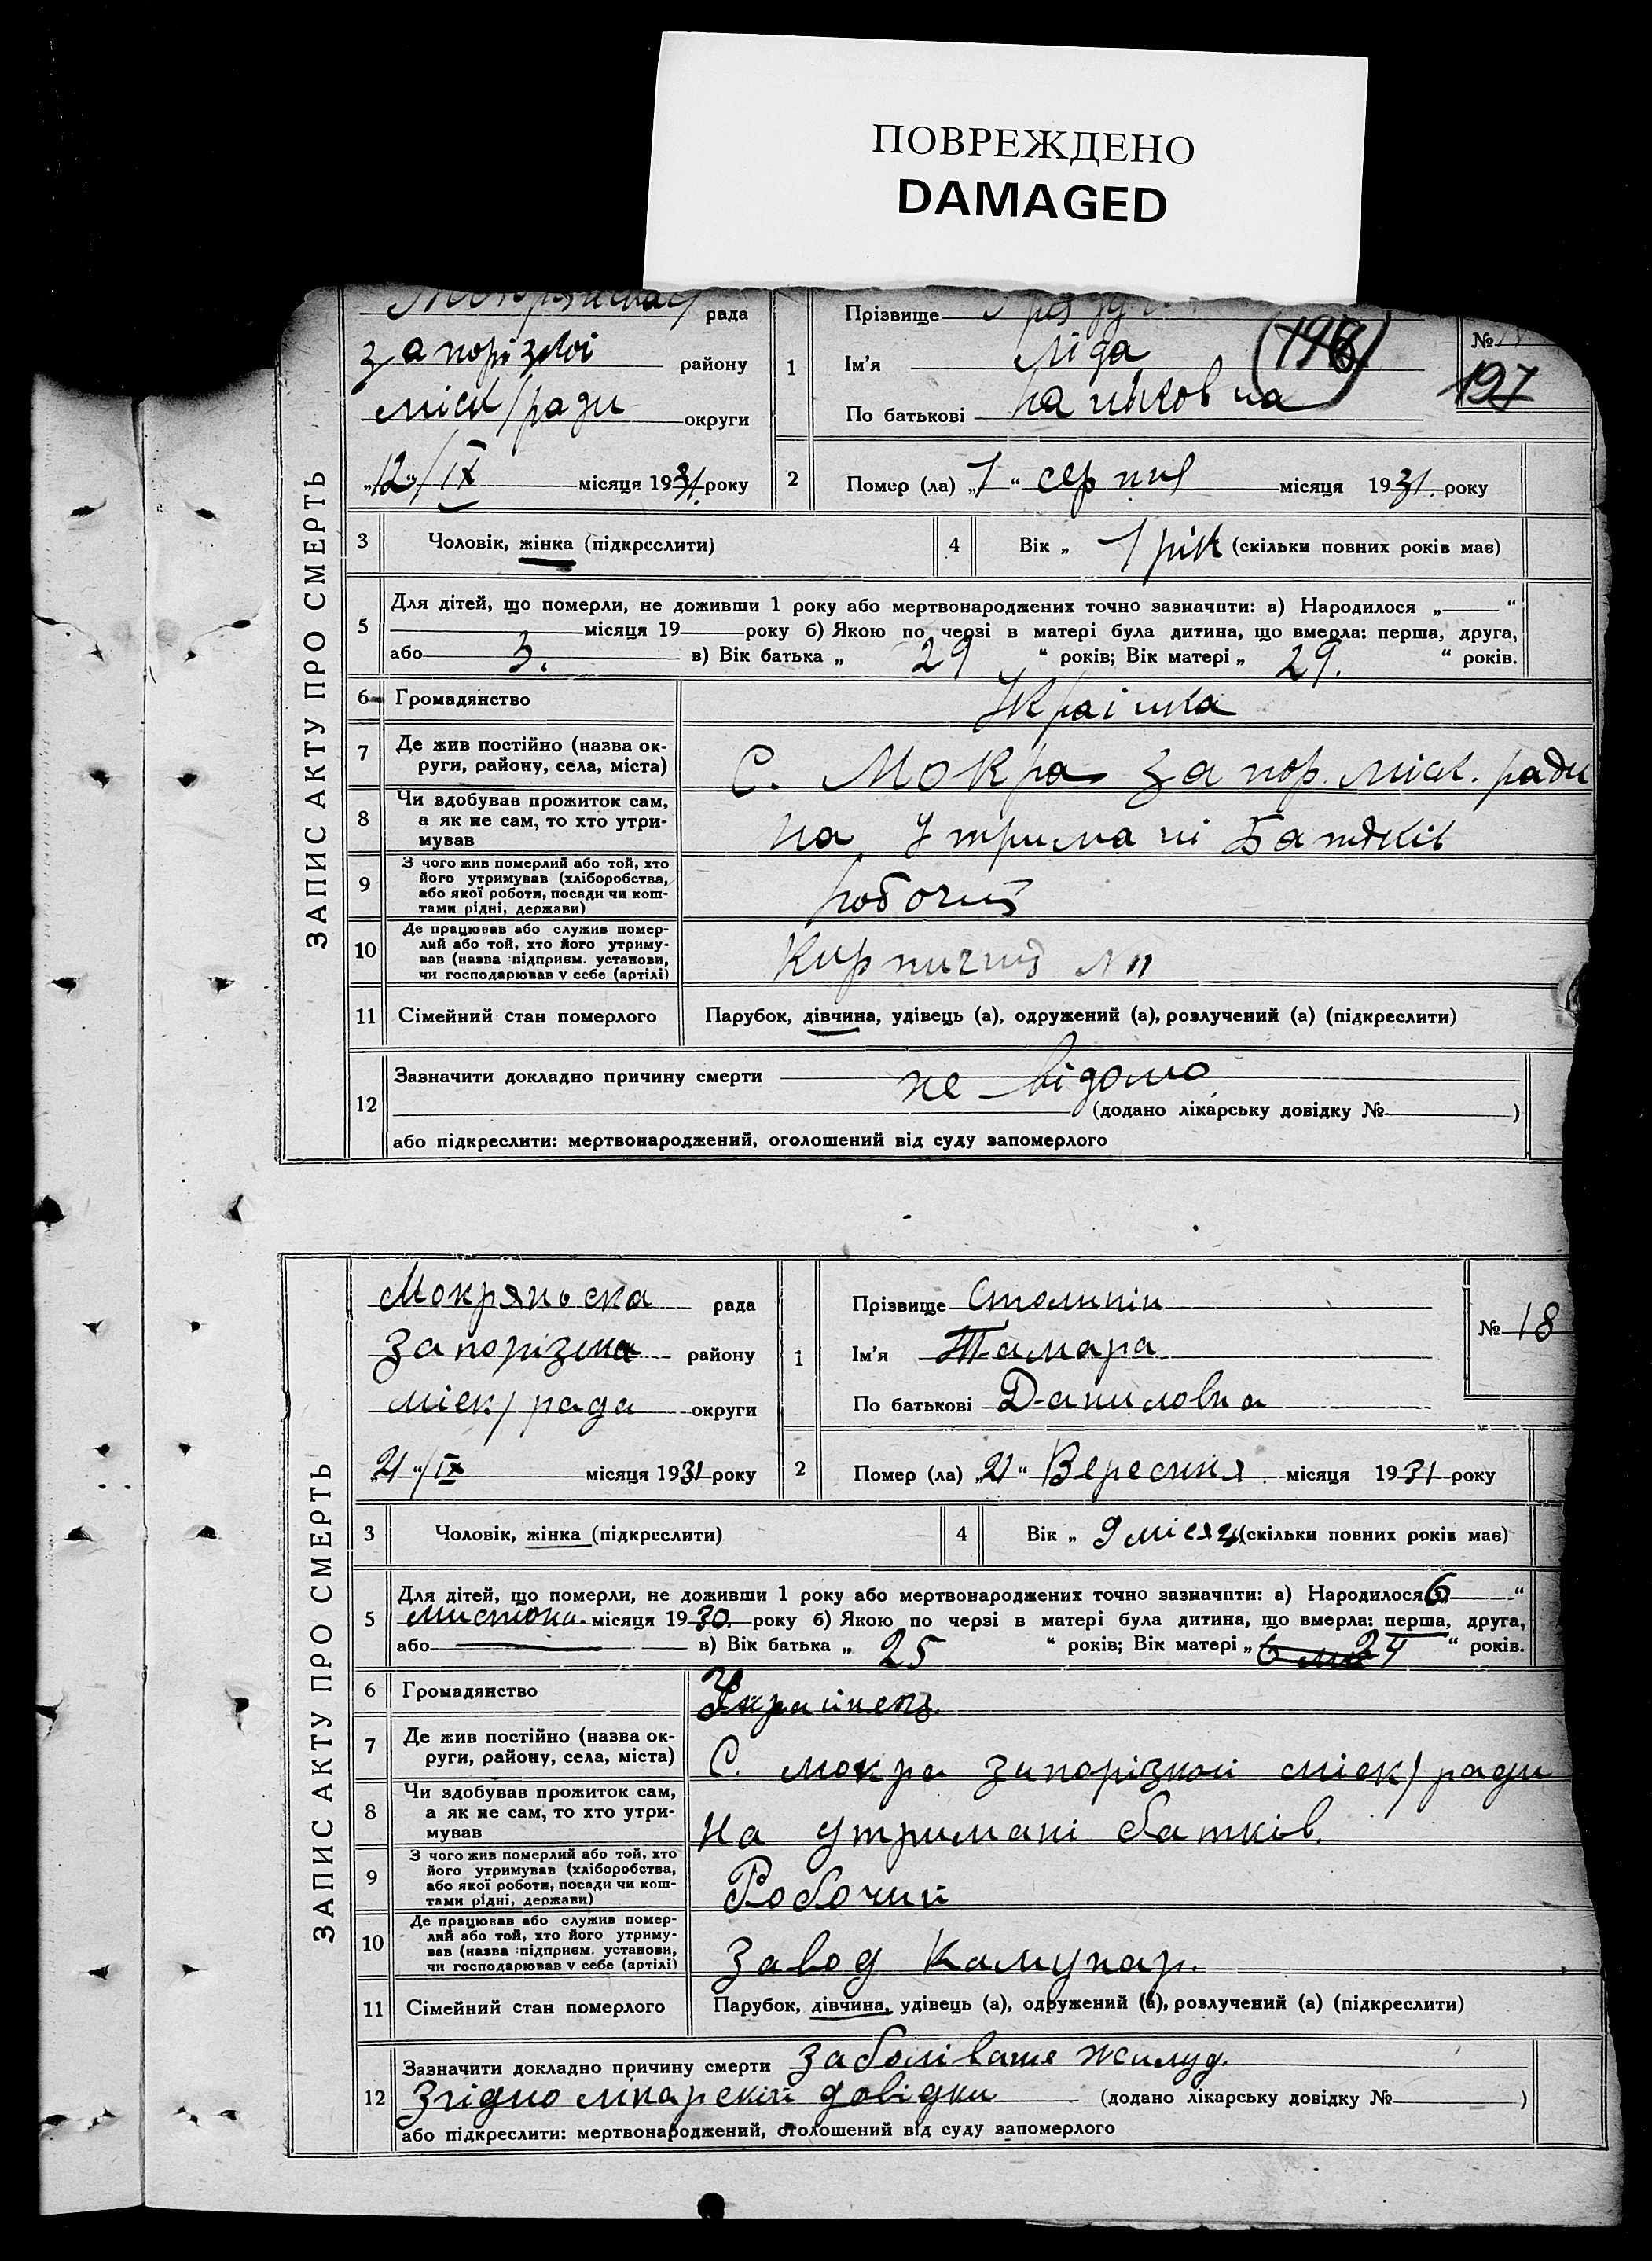 ПОВРЕЖДЕНО
DAMAGED
ЗАПИС АКТУ ПРО СМЕРТЬ
рада
запорізької району
міськ/ради округи
„12“/IX місяця 1931. року
1
Прізвище
Ім'я Ліда
По батькові
(196)
№
197
2
Помер (ла) „7“ серпня місяця 1931. року
3 Чоловік, жінка (підкреслити)
4 Вік „ 1 рік (скільки повних років має)
5
Для дітей, що померли, не доживши 1 року або мертвонароджених точно зазначити: а) Народилося „ “
місяця 19 року б) Якою по черзі в матері була дитина, що вмерла: перша, друга,
або 3. в) Вік батька „ 29 “ років; Вік матері „ 29. “ років.
6 Громадянство Українка
7 Де жив постійно (назва ок-
руги, району, села, міста) С. Мокра запор. міськ. ради
8 Чи здобував прожиток сам,
а як не сам, то хто утри-
мував на утримані Батьків
9 З чого жив померлий або той, хто
його утримував (хліборобства,
або якої роботи, посади чи кош-
тами рідні, держави) робочий
10 Де працював або служив помер-
лий або той, хто його утриму-
вав (назва підприєм. установи,
чи господарював у себе (артілі) Кирпичний
11 Сімейний стан померлого Парубок, дівчина, удівець (а), одружений (а), розлучений (а) (підкреслити)
12
Зазначити докладно причину смерти не відомо
(додано лікарську довідку № )
або підкреслити: мертвонароджений, оголошений від суду запомерлого
ЗАПИС АКТУ ПРО СМЕРТЬ
Мокряньска рада
Запорізька району
міськ/рада округи
„21“/IX місяця 1931 року
1
Прізвище Столипін
Ім'я Тамара
По батькові Даниловна
№ 18
2
Помер (ла) „21“ Вересния місяця 1931 року
3 Чоловік, жінка (підкреслити)
4 Вік „ 9 місяц (скільки повних років має)
5
Для дітей, що померли, не доживши 1 року або мертвонароджених точно зазначити: а) Народилося 6 “
місяця 1930. року б) Якою по черзі в матері була дитина, що вмерла: перша, друга,
або в) Вік батька „ 25 “ років; Вік матері „ 24 “ років.
6 Громадянство Українець.
7 Де жив постійно (назва ок-
руги, району, села, міста) С. мокра запорізкой міськ/ради
8 Чи здобував прожиток сам,
а як не сам, то хто утри-
мував На утримані батків.
9 З чого жив померлий або той, хто
його утримував (хліборобства,
або якої роботи, посади чи кош-
тами рідні, держави) Робочий
10 Де працював або служив помер-
лий або той, хто його утриму-
вав (назва підприєм. установи,
чи господарював у себе (артілі) Завод Камунар.
11 Сімейний стан померлого Парубок, дівчина, удівець (а), одружений (а), розлучений (а) (підкреслити)
12
Зазначити докладно причину смерти Заболіваня жилуд.
Згідно лікарский довідки (додано лікарську довідку № )
або підкреслити: мертвонароджений, оголошений від суду запомерлого